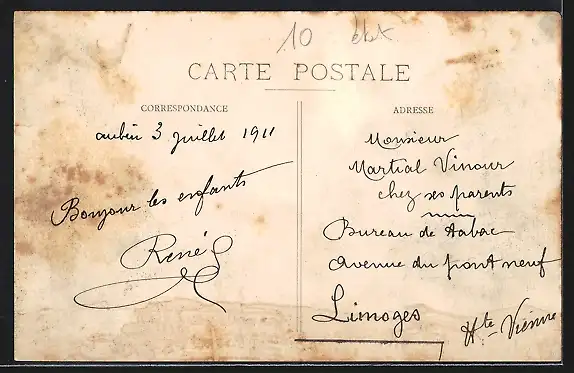 10 état
CARTE POSTALE
CORRESPONDANCE
aubin 3 juillet 1911
Bonjour les enfants
René
ADRESSE
Monsieur
Martial Vinour
chez ses parents
Bureau de tabac
avenue du pont neuf
Limoges
Hte Vienne